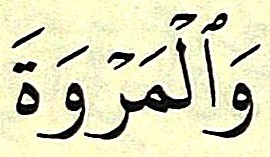 وَٱلْمَرْوَةَ